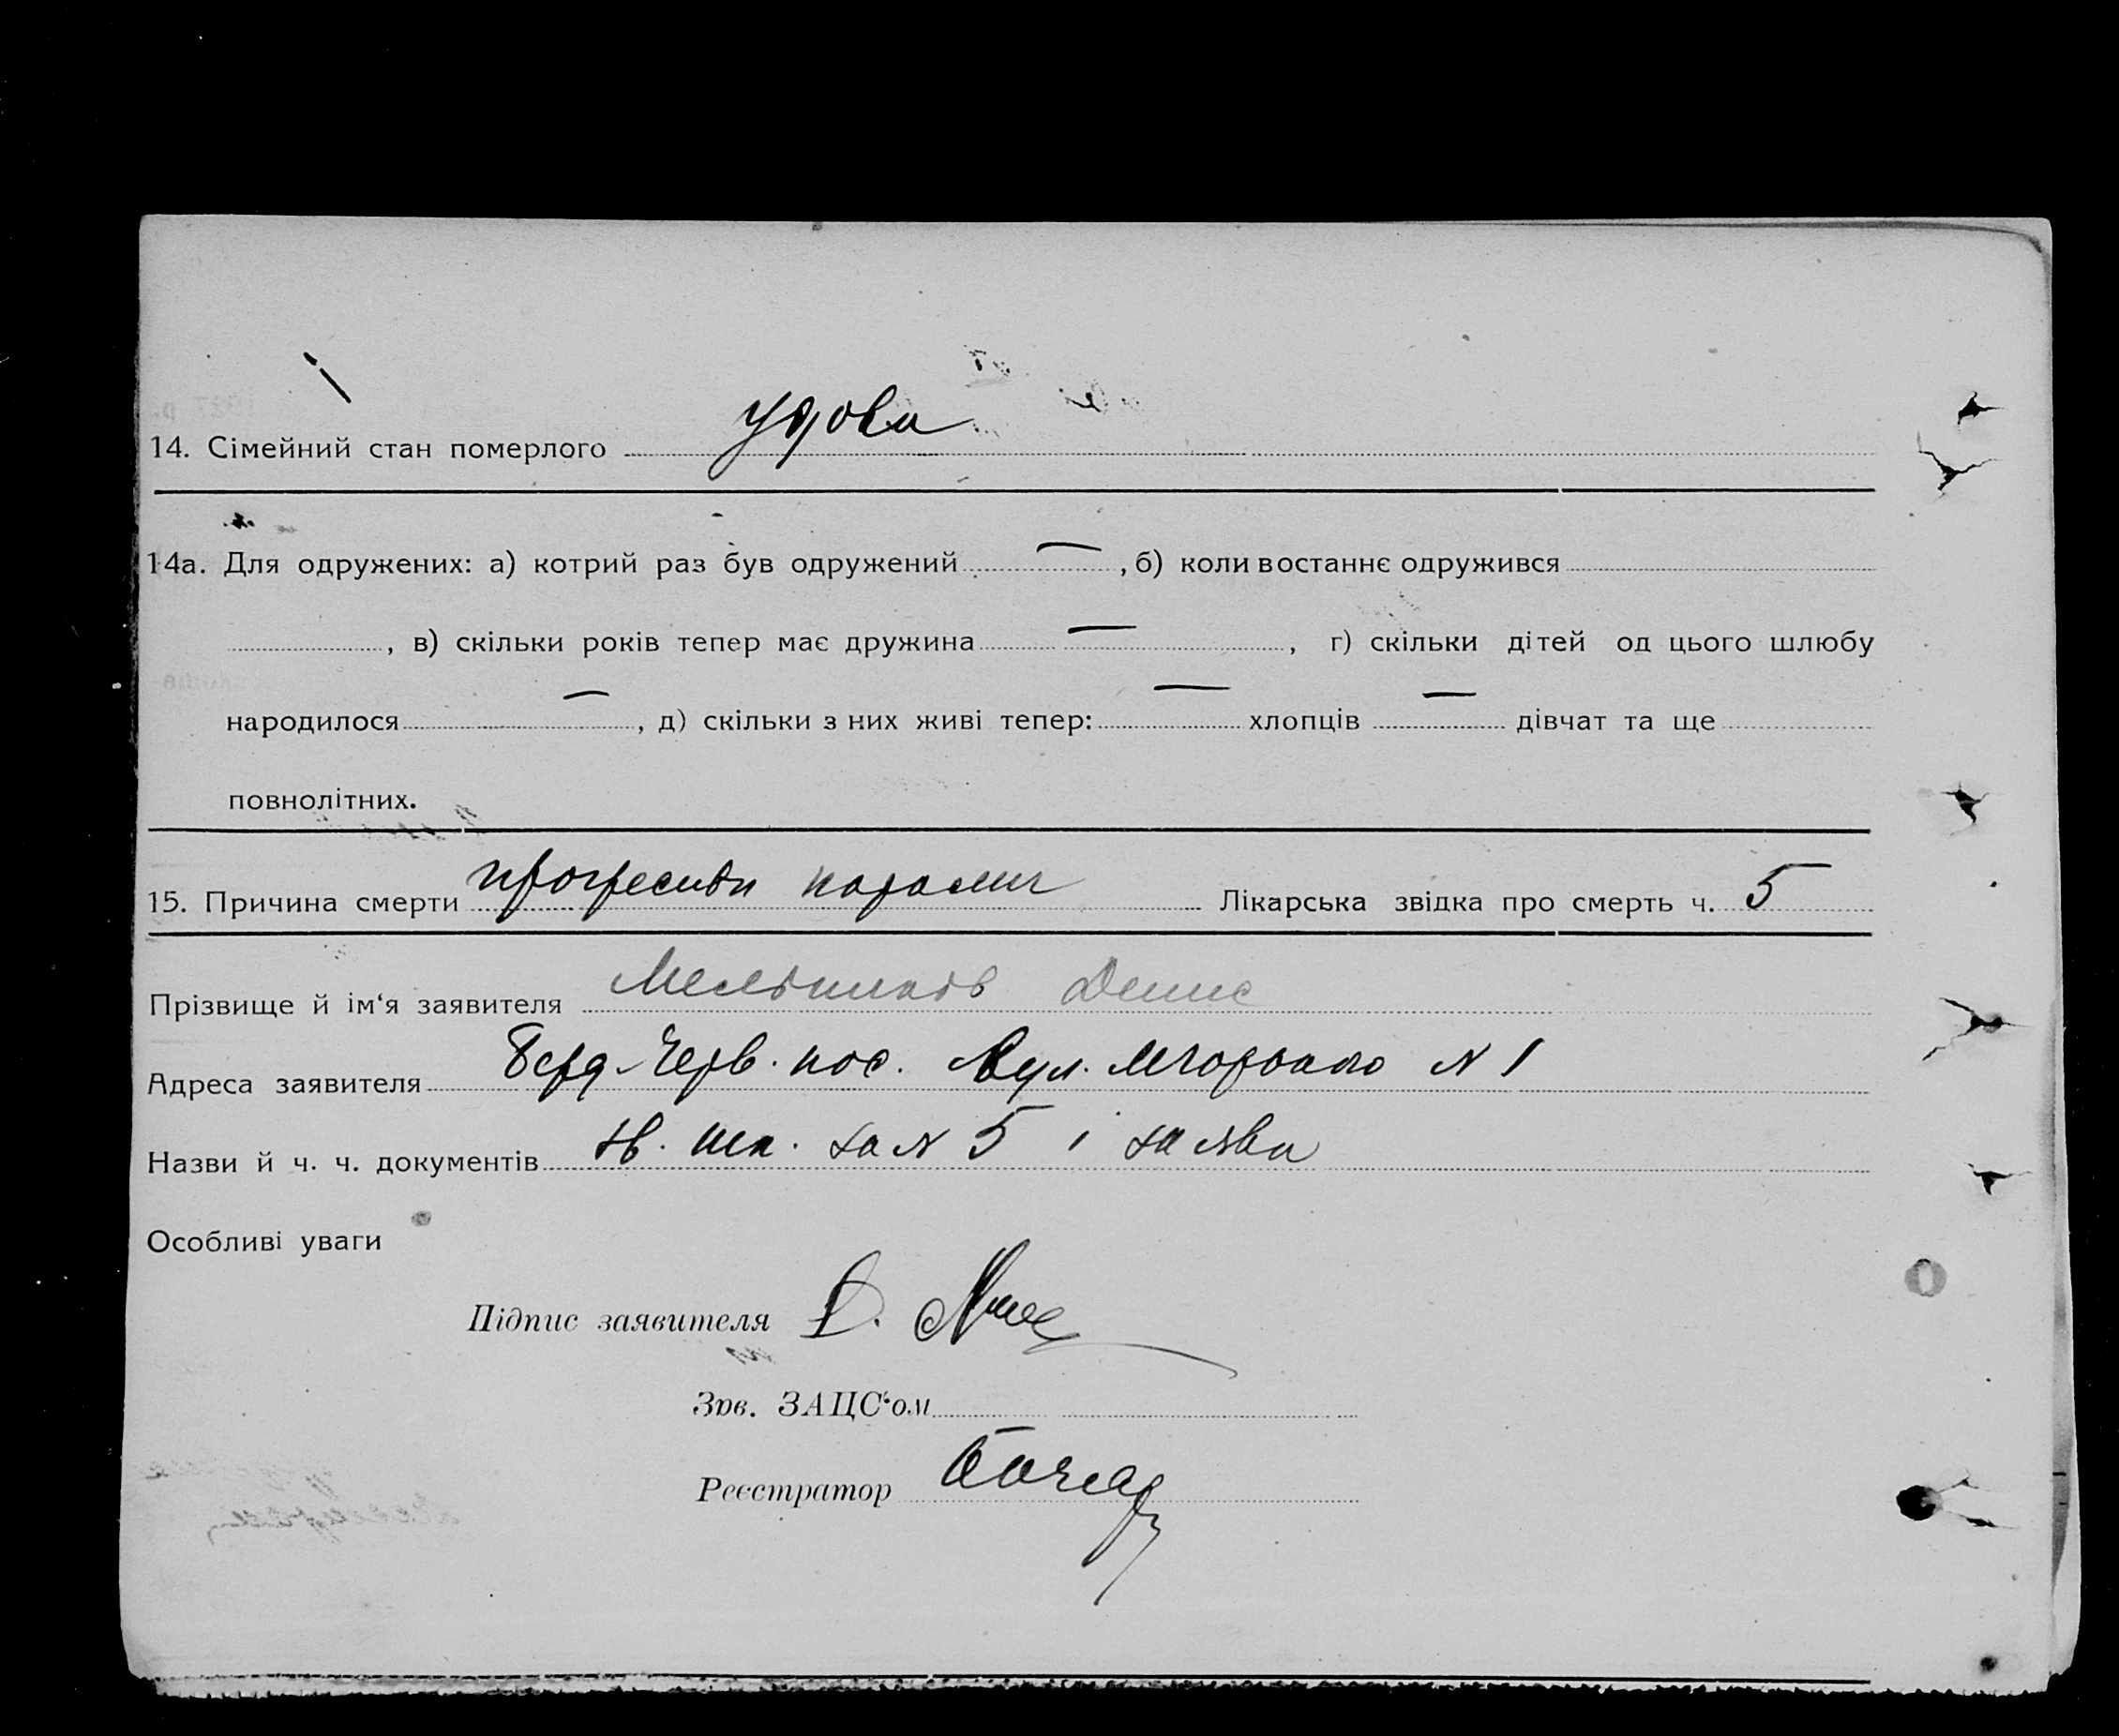 14. Сімейний стан померлого удова
14а. Для одружених: а) котрий раз був одружений —, б) коли востаннє одружився
, в) скільки років тепер має дружина —, г) скільки дітей од цього шлюбу
народилося —, д) скільки з них живі тепер: — хлопців — дівчат та ще
повнолітних.
15. Причина смерти прогресивн параліч Лікарська звідка про смерть ч. 5
Прізвище й ім'я заявителя Денис
Адреса заявителя Черв. пос. Вул. N 1
Назви й ч. ч. документів за N 5 і заява
Особливі уваги
Підпис заявителя Д.
Зав. ЗАЦС'ом
Реєстратор